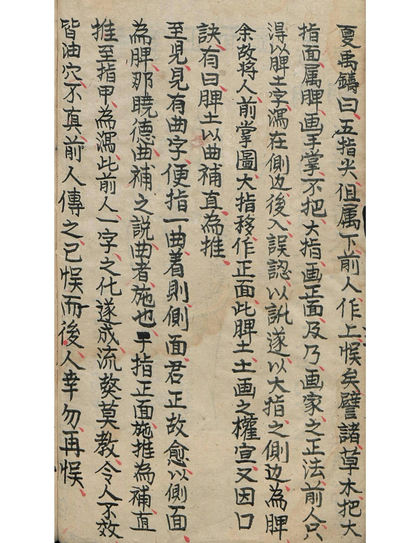 夏禹鑄曰五指尖但属下前人作上悞矣譬諸草木把大
指面属脾画手掌不把大指画正面及乃画家之正法前人只
得以脾土字瀉在側边後入誤認以訛遂以大指之側边為脾
余故將人前掌圖大指移作正面此脾土土画之權宣又因口
訣有曰脾土以曲補直為推
至児見有曲字便指一曲着則側面君正故愈以側面
為脾那曉德曲補之説曲者施也于指正面施推為補直
推至指甲為瀉此前人一字之化遂成流獘莫教令人不效
皆油穴不真前人傳之已悞而後人幸勿再悞